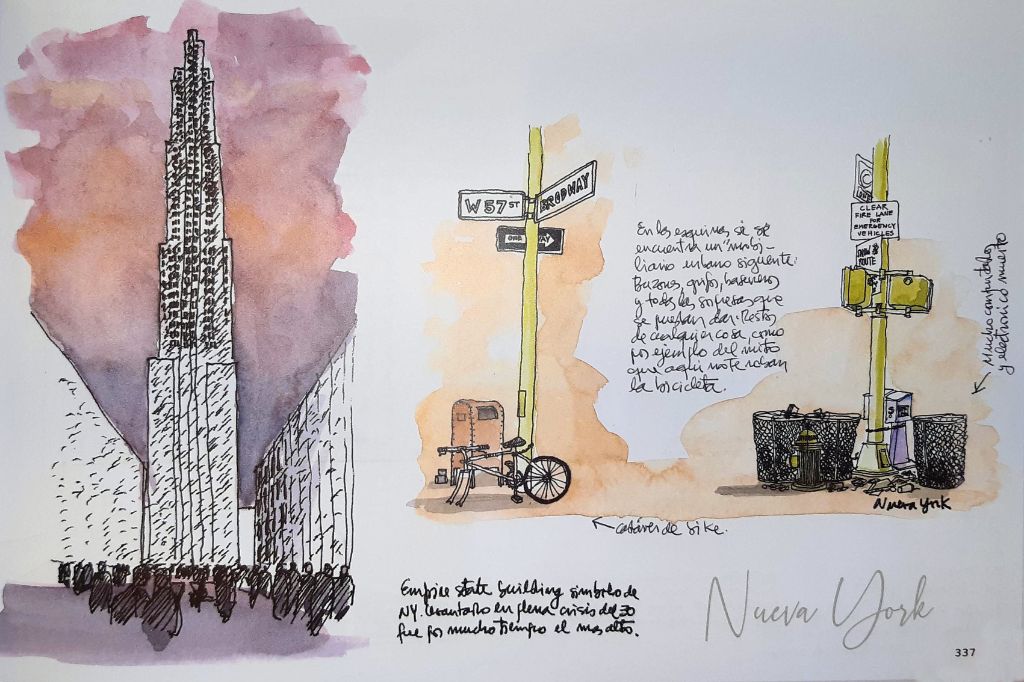 W 57 ST
BRODWAY
ONE WAY
En las esquinas si se
encuentra un "mobi-
liario urbano siguiente:
Buzones, grifos, basureros
y todas las sorpresas que
se puedan dar. Restos
de cualquier cosa, como
por ejemplo del mito
que aquí no te roban
la bicicleta.
CLEAR
FIRE LANE
FOR
EMERGENCY
VEHICLES
SNOW
ROUTE
Mucho computador
y electronico muerto
Nueva York
cadáver de bike.
Empire State Building simbolo de
NY. Levantado en plena crisis del 30
fue por mucho tiempo el mas alto.
Nueva York
337